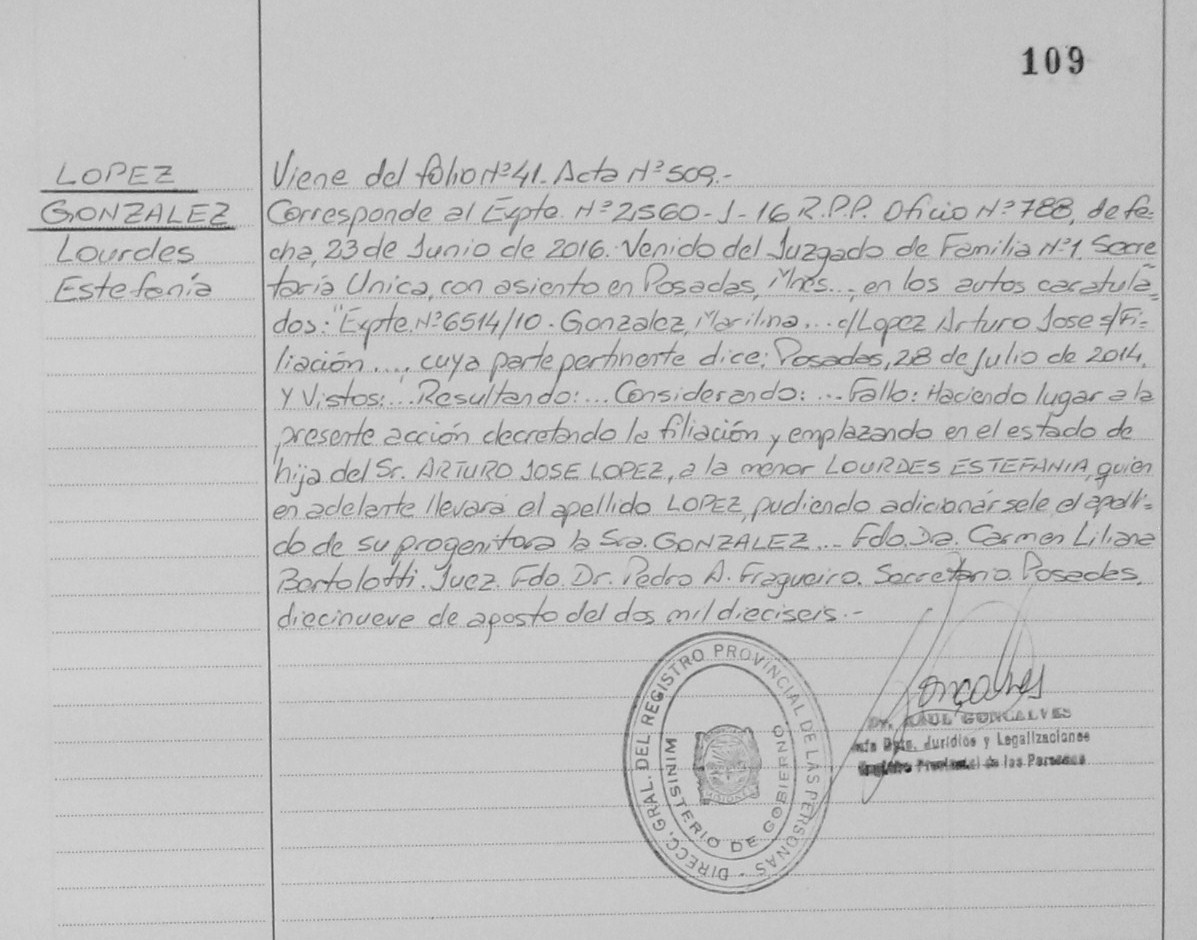 109
LOPEZ
GONZALEZ
Lourdes
Estefanía
Viene del folio Nº 41. Acta Nº 509.-
Corresponde al Expte. Nº 2560-J-16 R.P.P. Oficio Nº 788, de fe-
cha, 23 de Junio de 2016. Venido del Juzgado de Familia Nº 1, Secre
taría Unica, con asiento en Posadas, Mnes..., en los autos caratula-
dos: "Expte. Nº 6514/10 - Gonzalez, Marilina... c/Lopez Arturo Jose s/Fi-
liación...., cuya parte pertinente dice: Posadas, 28 de Julio de 2014.
Y Vistos:... Resultando:... Considerando:... Fallo: Haciendo lugar a la
presente acción decretando la filiación y emplazando en el estado de
hija del Sr. ARTURO JOSE LOPEZ, a la menor LOURDES ESTEFANIA, quien
en adelante llevará el apellido LOPEZ, pudiendo adicionársele el apelli-
do de su progenitora la Sra. GONZALEZ... Fdo. Dra. Carmen Liliana
Bortolotti. Juez. Fdo. Dr. Pedro A. Fragueiro. Secretario. Posadas,
diecinueve de agosto del dos mil dieciseis.-
DIRECC. GRAL. DEL REGISTRO PROVINCIAL DE LAS PERSONAS -
MINISTERIO DE GOBIERNO
MISIONES
Gonçalves
Dr. RAUL GONCALVES
Jefe Dpto. Juridico y Legalizaciones
Registro Provincial de las Personas